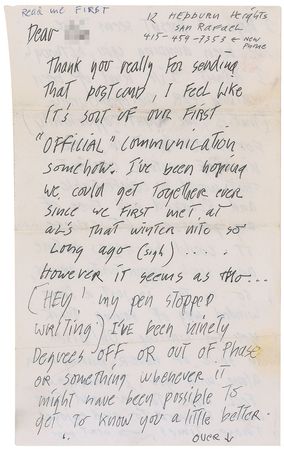 Read me FIRST
12 Hepburn Heights
San Rafael
415-459-7353 ← New Phone
Dear
Thank you really for sending
that postcard, I feel like
it's sort of our first
"OFFICIAL" communication
somehow. I've been hoping
we could get together ever
since we first met at
al's that winter nite so
long ago (sigh) . . . .
However it seems as tho...
(HEY! my pen stopped
writing) I've been ninety
degrees OFF or out of phase
or something whenever it
might have been possible to
get to know you a little better.
over ↓